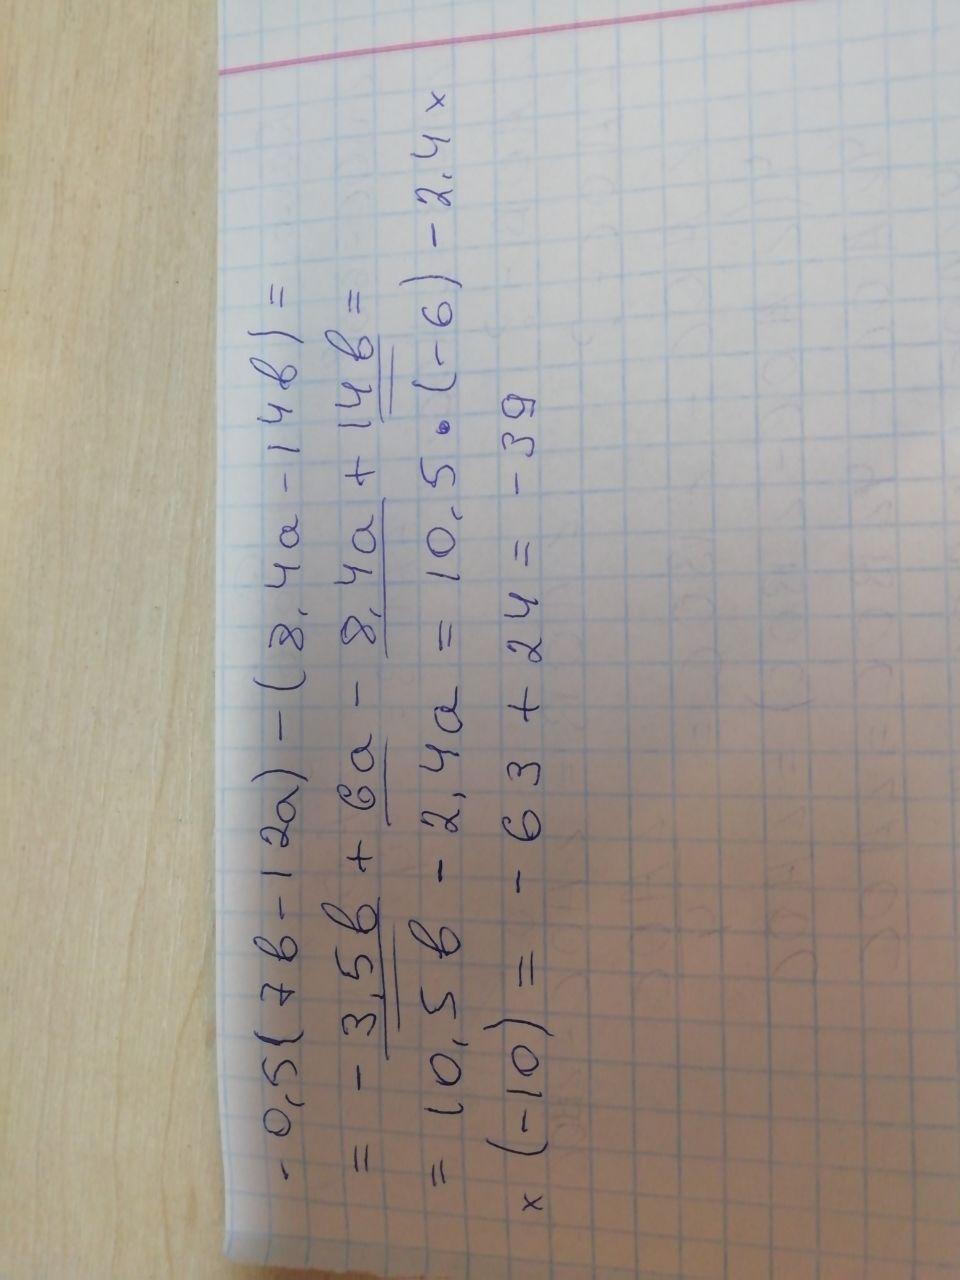 - 0,5(7в-12а)-(8,4а-14в)=
= -3,5в+6а-8,4а+14в=
= 10,5в-2,4а=10,5•(-6)-2.4×
×(-10)= -63+24= -39